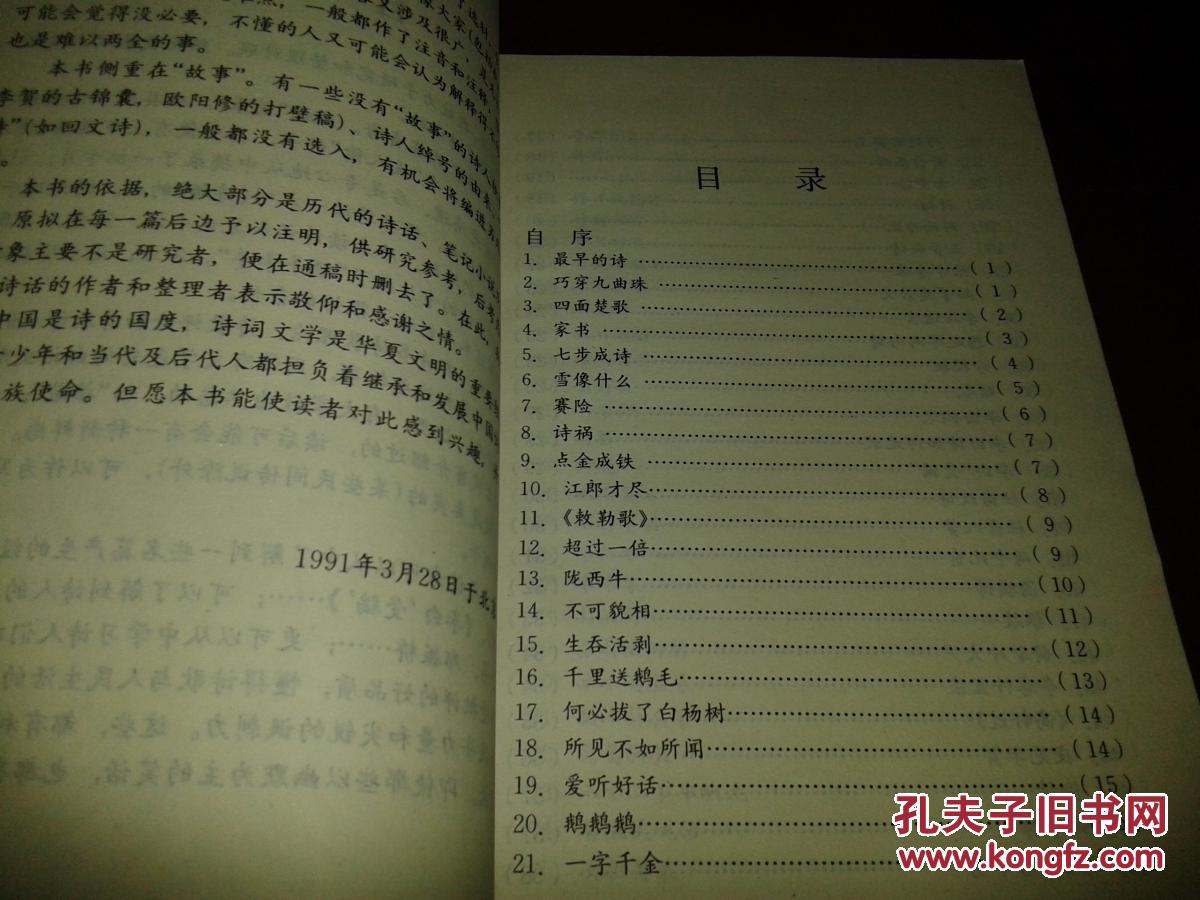 可能会觉得没必要，不懂的人又可能会认为解释得不
也是难以两全的事。
本书侧重在“故事”。有一些没有“故事”的诗人
李贺的古锦囊，欧阳修的打壁稿)、诗人绰号的由来、
”(如回文诗)，一般都没有选入，有机会将编进另
。
本书的依据，绝大部分是历代的诗话、笔记小说
原拟在每一篇后边予以注明，供研究参考，后考
象主要不是研究者，便在通稿时删去了。在此，
诗话的作者和整理者表示敬仰和感谢之情。
中国是诗的国度，诗词文学是华夏文明的重要
少年和当代及后代人都担负着继承和发展中国
族使命。但愿本书能使读者对此感到兴趣，
1991年3月28日于北京
目 录
自 序
1. 最早的诗 ……(1)
2. 巧穿九曲珠 ……(1)
3. 四面楚歌 ……(2)
4. 家书 ……(3)
5. 七步成诗 ……(4)
6. 雪像什么 ……(5)
7. 赛险 ……(6)
8. 诗祸 ……(7)
9. 点金成铁 ……(7)
10. 江郎才尽……(8)
11.《敕勒歌》……(9)
12. 超过一倍……(9)
13. 陇西牛……(10)
14. 不可貌相……(11)
15. 生吞活剥……(12)
16. 千里送鹅毛……(13)
17. 何必拔了白杨树……(14)
18. 所见不如所闻……(14)
19. 爱听好话……(15)
20. 鹅鹅鹅……
21. 一字千金……
孔夫子旧书网
www.kongfz.com